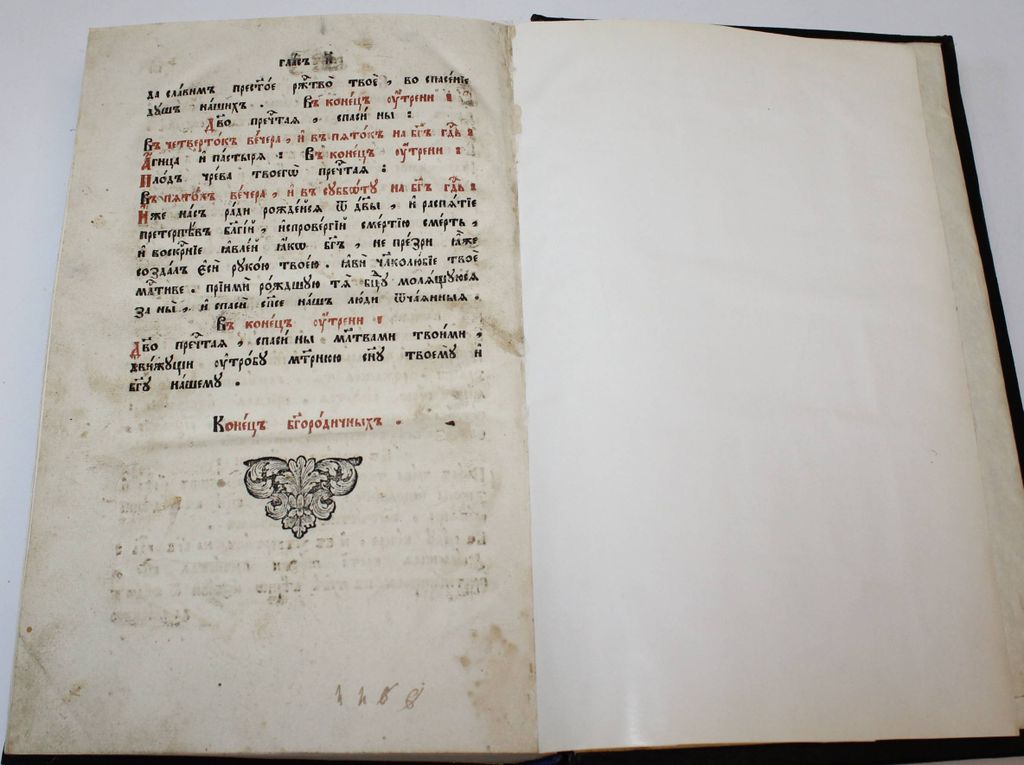 гла́съ и҃
да сла́вимъ прест҃о́е рж҃тво̀ твоѐ, во спасе́нїе
ду́шъ на́шихъ. Въ коне́цъ оу҆́трени:
Дв҃о преч҃тая, спаси́ ны:
Въ четверто́къ ве́чера, и҆ въ пято́къ на бг҃ъ гдⷭ҇ь:
А҆́гница и҆ па́стыря: Въ коне́цъ оу҆́трени:
Пло́дъ чре́ва твоегѡ̀ преч҃тая:
Въ пято́къ ве́чера, и҆ въ суббѡ́ту на бг҃ъ гдⷭ҇ь:
И҆́же на́съ ра́ди рожде́йся ѿ дв҃ы, и҆ распя́тїе
претерпѣ́въ бл҃гі́й, и҆спрове́ргїй сме́ртїю сме́рть,
и҆ воскр҃нїе ꙗ҆вле́й ꙗ҆́кѡ бг҃ъ, не пре́зри ꙗ҆̀же
созда́лъ є҆сѝ руко́ю твое́ю. ꙗ҆вѝ чл҃колю́бїе твоѐ
мл҃тиве. прїимѝ ро́ждшую тя̀ бц҃у моля́щуюся
за ны̀, и҆ спасѝ сп҃се на́шъ лю́ди ѿча́янныя.
Въ коне́цъ оу҆́трени:
Дв҃о преч҃тая, спаси́ ны мл҃твами твои́ми,
дви́жущи оу҆тро́бу мт҃рнюю сн҃у твоему̀ и҆
бг҃у на́шему.
Коне́цъ бг҃оро́дичныхъ.